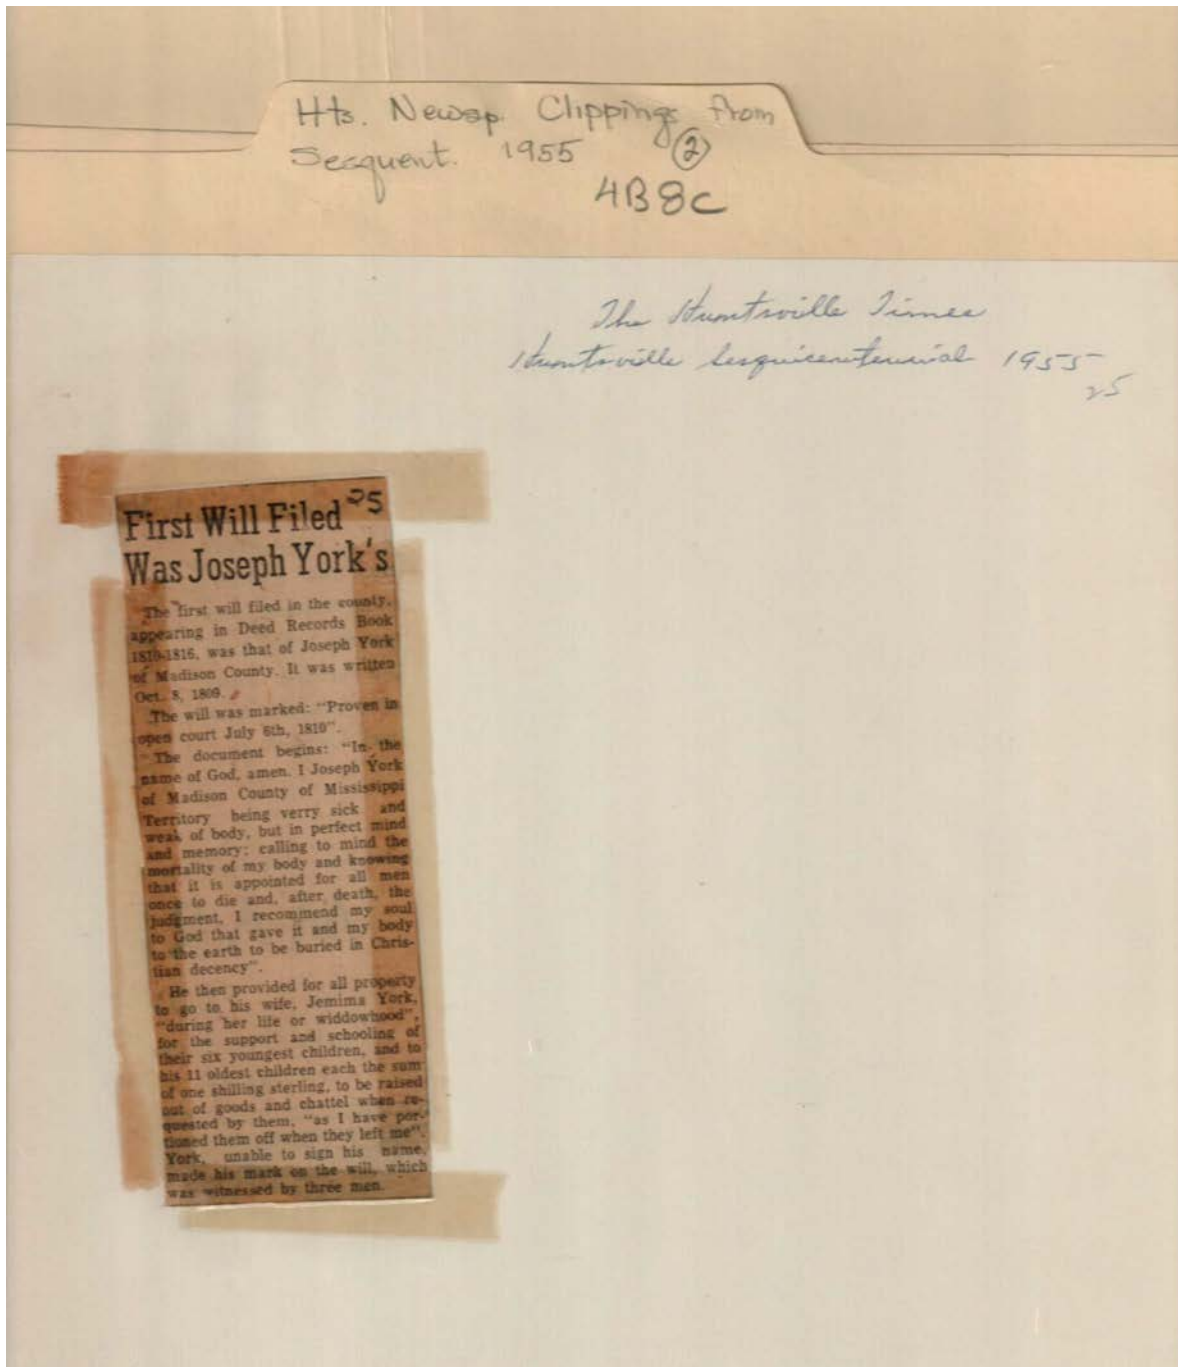 Hts. Newsp. Clippings from
Sesquent. 1955 ②
4B8C
The Huntsville Times
Huntsville Sesquicentennial 1955
25
25
First Will Filed
Was Joseph York's
The first will filed in the county,
appearing in Deed Records Book
1810-1816, was that of Joseph York
of Madison County. It was written
Oct. 8, 1809.
The will was marked: "Proven in
open court July 6th, 1810".
The document begins: "In the
name of God, amen. I Joseph York
of Madison County of Mississippi
Territory being verry sick and
weak of body, but in perfect mind
and memory; calling to mind the
mortality of my body and knowing
that it is appointed for all men
once to die and, after death, the
judgment, I recommend my soul
to God that gave it and my body
to the earth to be buried in Chris-
tian decency".
He then provided for all property
to go to his wife, Jemima York,
"during her life or widdowhood",
for the support and schooling of
their six youngest children, and to
his 11 oldest children each the sum
of one shilling sterling, to be raised
out of goods and chattel when re-
quested by them, "as I have por-
tioned them off when they left me".
York, unable to sign his name,
made his mark on the will, which
was witnessed by three men.